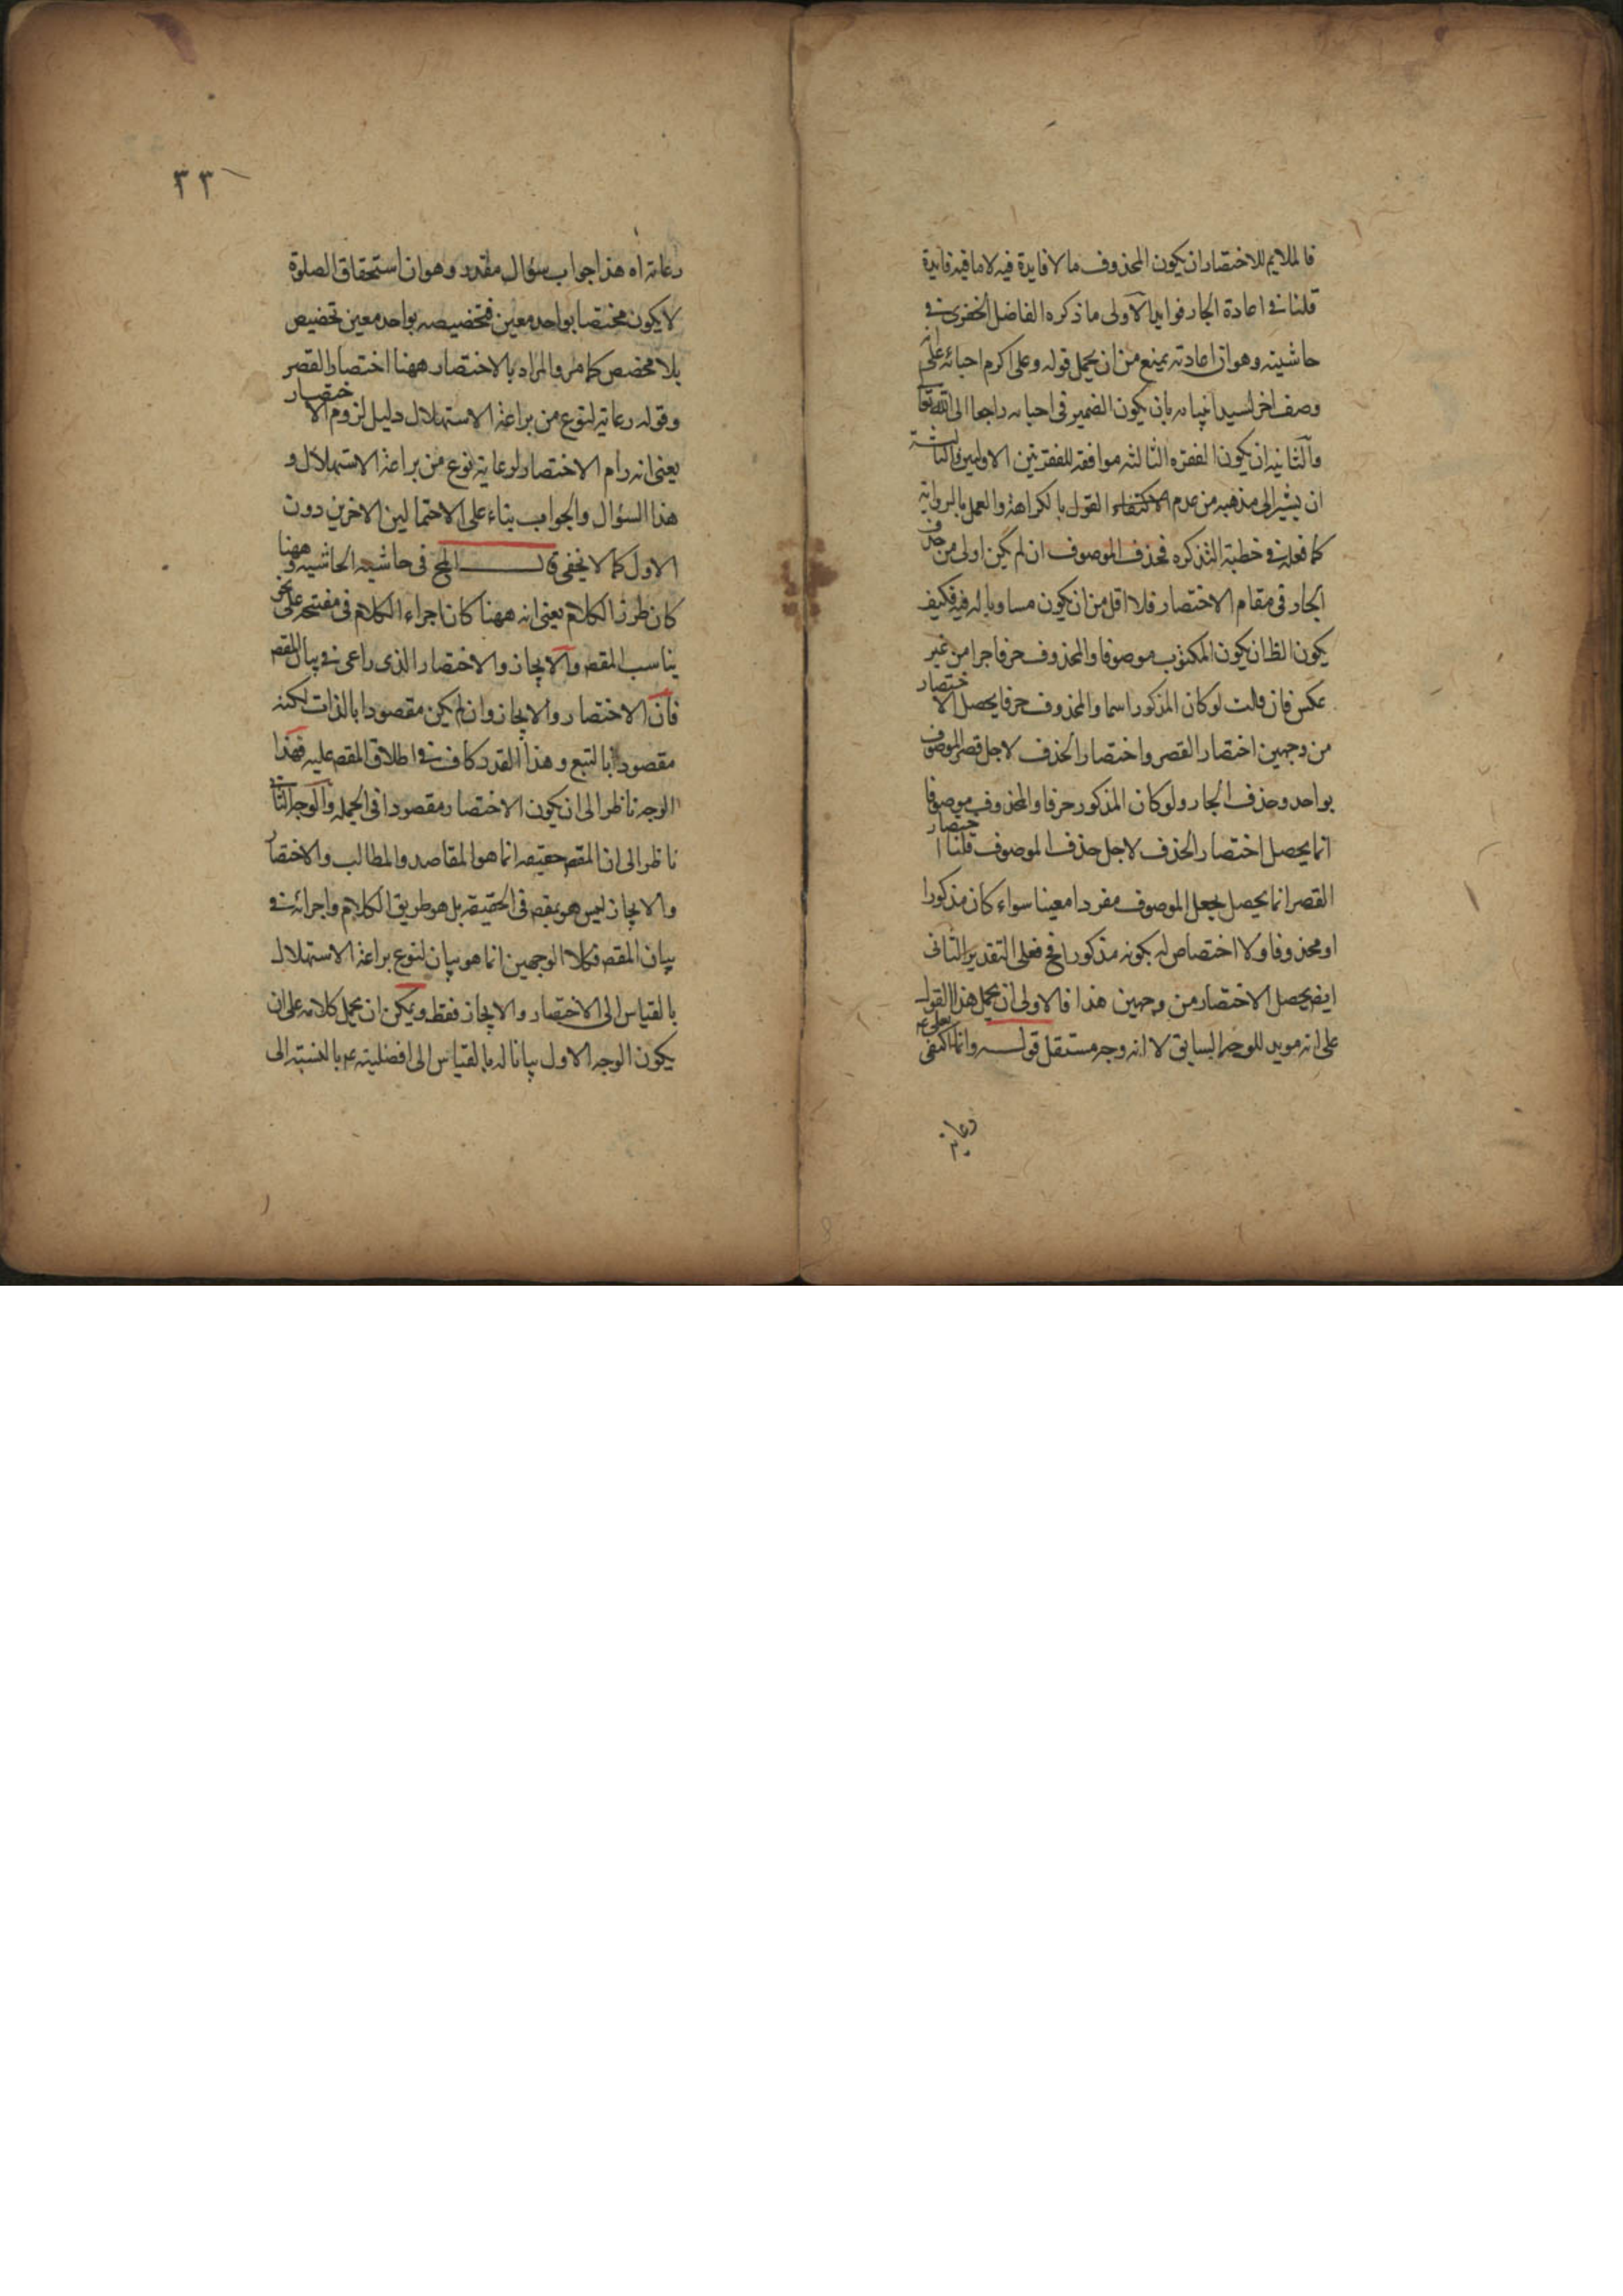 فالملايم للاختصار ان يكون المحذوف ما لا فايدة فيه لا ما فيه فايدة
قلنا في اعادة الجار فوايد الاولى ما ذكره الفاضل الخفرى في
حاشيته وهو ان اعادته يمنع من ان يحمل قوله وعلى اكرم احبائه على انه
وصف اخر لسيد انبيائه بان يكون الضمير في احبائه راجعا الى الله تعا
والثانية ان يكون الفقره الثالثه موافقه للفقرتين الاوليين والثالثة
ان يشير الى مذهبه من عدم الاكتفاء والقول بالكراهة والعمل بالرواية
كما فعله في خطبة التذكره فحذف الموصوف ان لم يكن اولى من حذف
الجار في مقام الاختصار فلا اقل من ان يكون مساويا له فيه فكيف
يكون الظ ان يكون المكتوب موصوفا والمحذوف حرفا جرا من غير
عكس فان قالت لو كان المذكور اسما والمحذوف حرفا يحصل الاختصار
من وجهين اختصار القصر واختصار الحذف لاجل قصر الموصوف
بواحد وحذف الجار ولو كان المذكور حرفا والمحذوف موصوفا
انما يحصل اختصار الحذف لاجل حذف الموصوف قلنا اختصار
القصر انما يحصل بجعل الموصوف مفردا معينا سواء كان مذكورا
او محذوفا ولا اختصاص له بكونه مذكورا فح فعلى التقدير الثانى
ايض يحصل الاختصار من وجهين هذا فالاولى ان يحمل هذا القول
على انه مويد للوجه السابق لا انه وجه مستقل قوله وانما اكتفى بعلى ع
رعاية
٣٣
رعاية اه هذا جواب سؤال مقدر وهو ان استحقاق الصلوة
لا يكون مختصا بواحد معين فتخصيصه بواحد معين تخصيص
بلا مخصص كما مر والمراد بالاختصار ههنا اختصار القصر
وقوله رعاية لنوع من براعة الاستهلال دليل لزوم الاختصار
يعنى انه رام الاختصار لرعاية نوع من براعة الاستهلال و
هذا السؤال والجواب بناء على الاحتمالين الاخرين دون
الاول كما لا يخفى قال المح فى حاشية الحاشيه وههنا
كان طرز الكلام يعنى انه ههنا كان اجراء الكلام فى مفتتحه على نحو
يناسب المقصد والايجاز والاختصار الذى راعى في بيان المقصد
فان الاختصار والايجاز وان لم يكن مقصودا بالذات لكنه
مقصود بالتبع وهذا القدر كاف في اطلاق المقصد عليه فهذا
الوجه ناظر الى ان يكون الاختصار مقصودا فى الجمله والوجه الثاني
ناظر الى ان المقصد حقيقه انما هو المقاصد والمطالب والاختصار
والايجاز ليس هو بمقصد فى الحقيقه بل هو طريق الكلام واجرائه في
بيان المقصد فكلا الوجهين انما هو بيان لنوع براعة الاستهلال
بالقياس الى الاختصار والايجاز فقط ويمكن ان يحمل كلامه على ان
يكون الوجه الاول بيانا له بالقياس الى افضليته ع بالنسبة الى